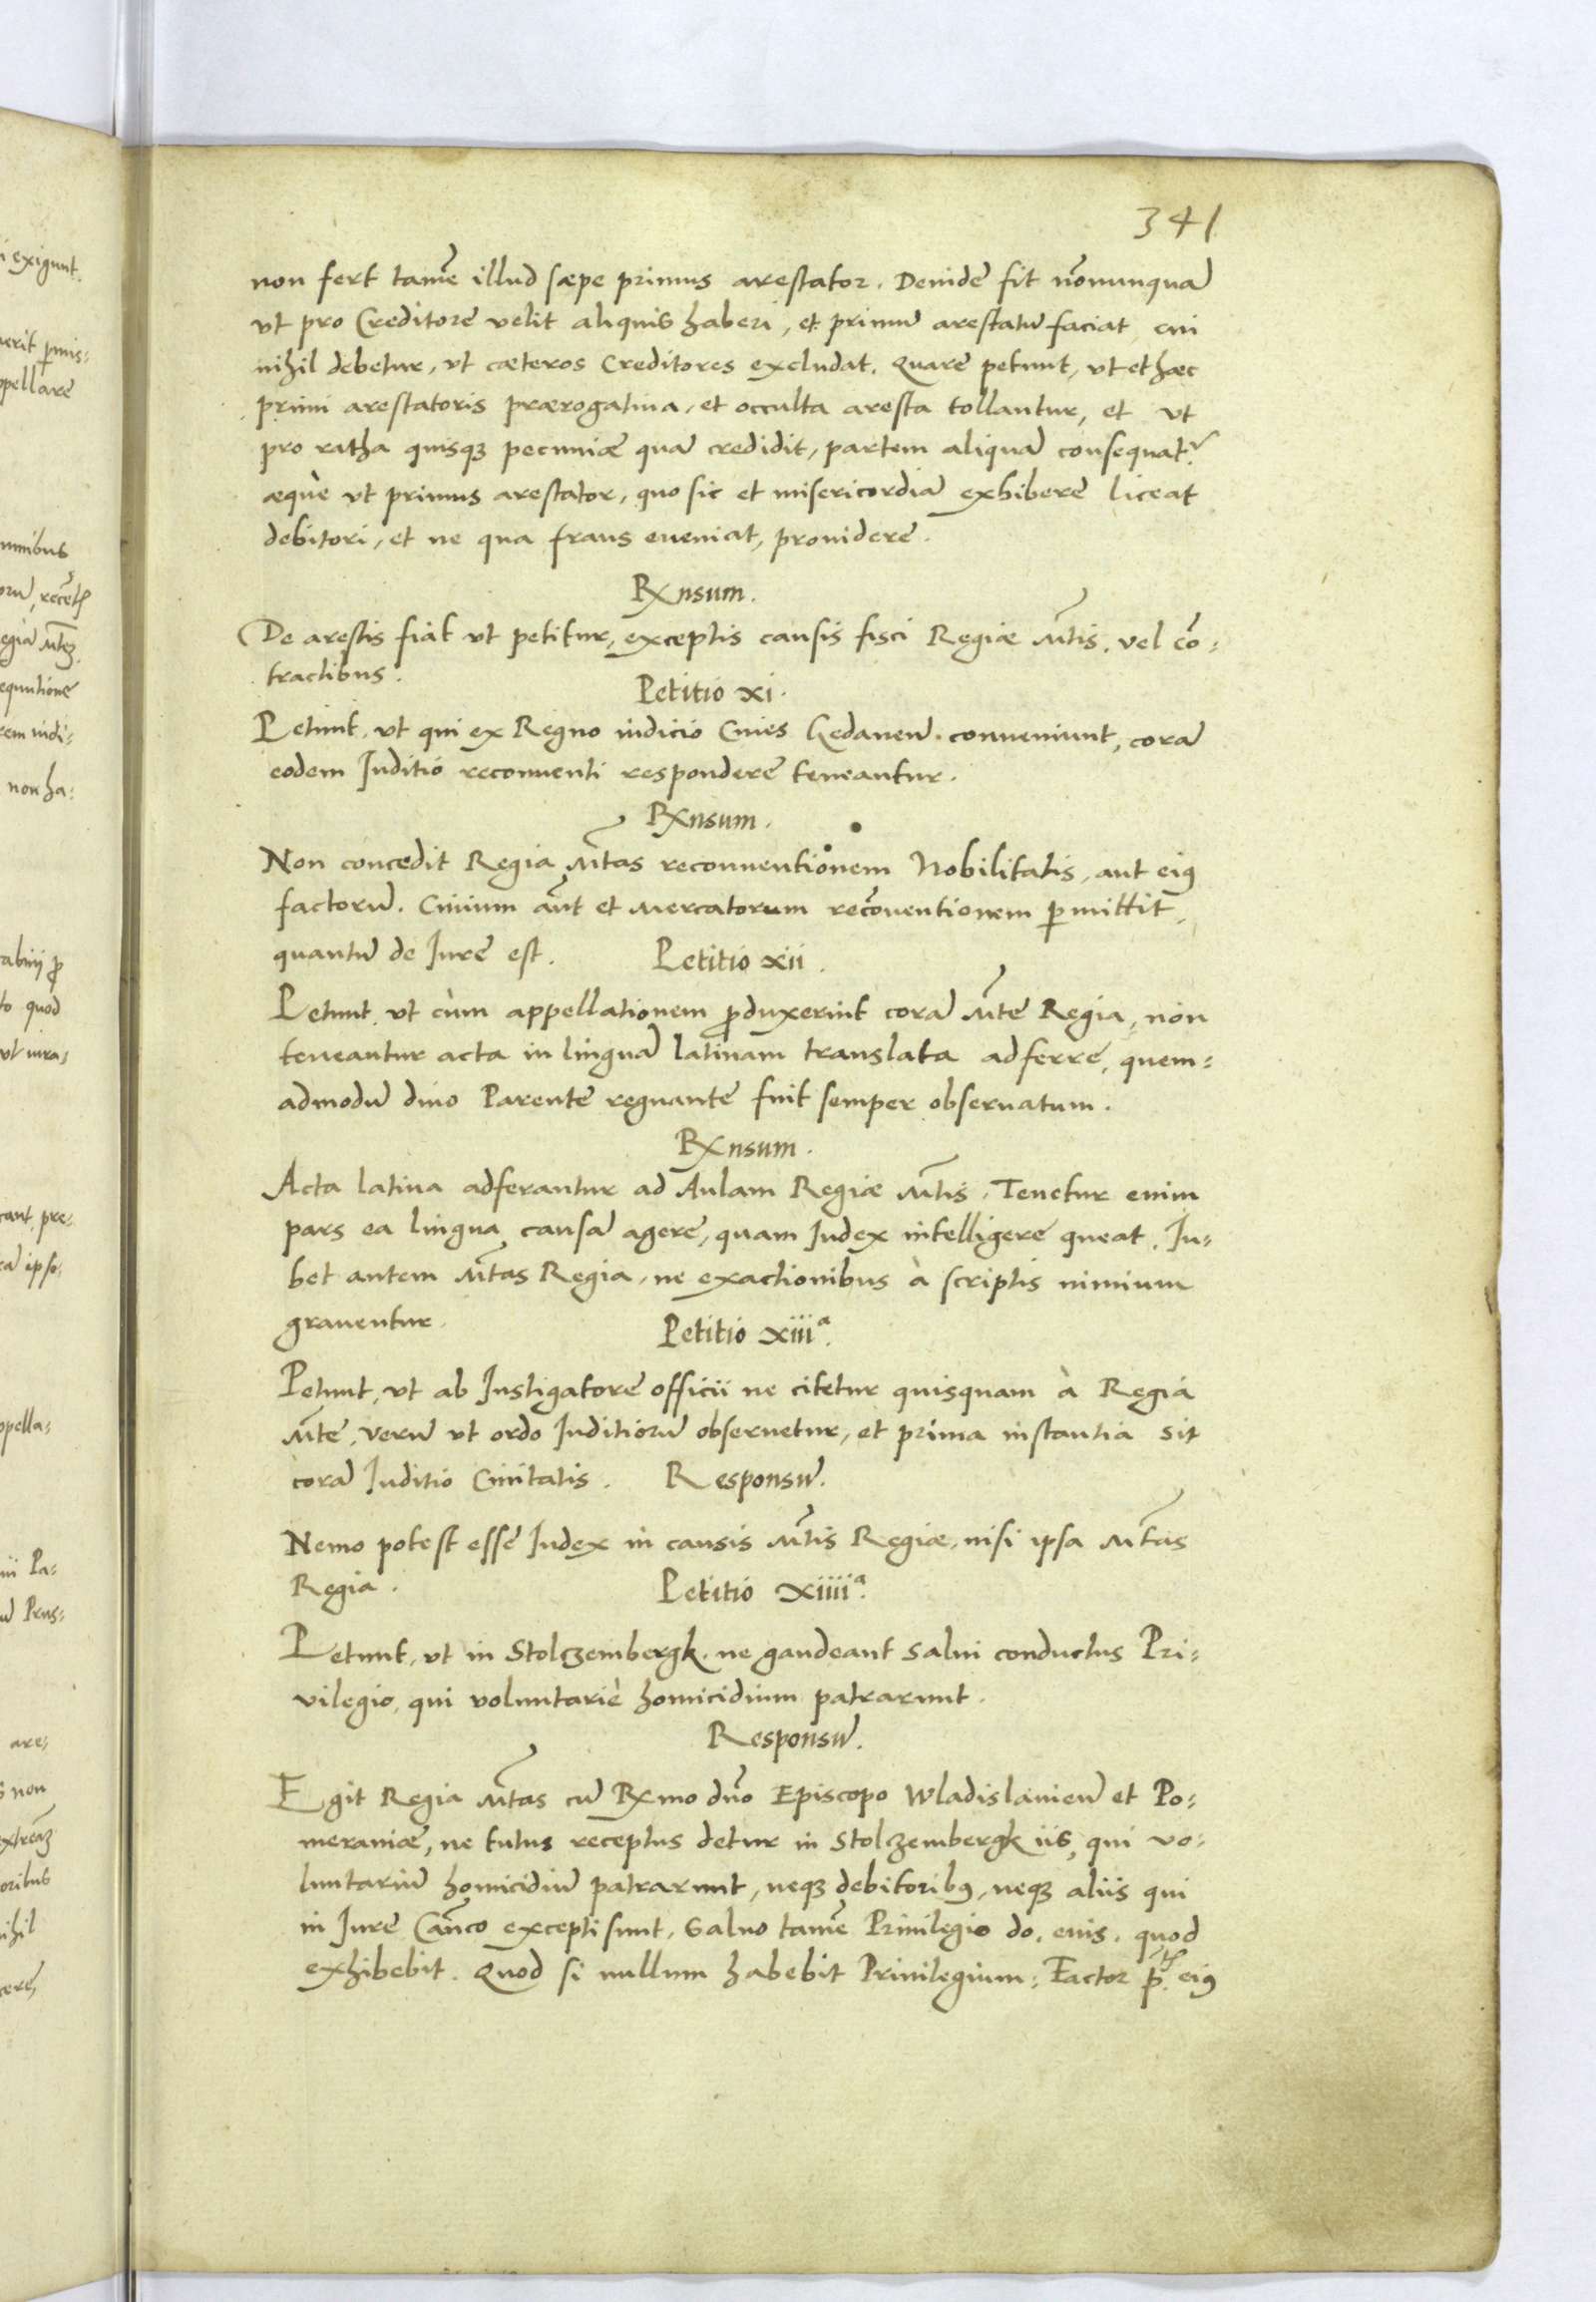 341
non fert tamẽ illud sæpe primus arestator. Deinde fit nõnunquã
vt pro Creditore velit aliquis haberi, et primũ arestatũ faciat, cui
nihil debetur, vt cæteros Creditores excludat. Quare petunt, vt et hæc
primi arestatoris prærogatiua, et occulta aresta tollantur, et vt
pro ratha quisqꝫ pecuniæ quã credidit, partem aliquã consequat᷑
æque vt primus arestator, quo sic et misericordiã exhibere liceat
debitori, et ne qua fraus eueniat, prouidere.
Rxnsum.
De arestis fiat vt petitur, exceptis causis fisci Regiæ Mt̃is. vel cõ:
tractibus.
Petitio xi.
Petunt, vt qui ex Regno iudicio Ciues Gedaneñ. conueniunt, corã
eodem Juditio reconuenti respondere teneantur.
Rxnsum.
Non concedit Regia Mt̃as reconuentionem Nobilitatis, aut eiꝰ
factorũ. Ciuium aũt et Mercatorum recõuentionem ꝑmittit,
quantũ de Jure est.
Petitio xii.
Petunt, vt cùm appellationem ꝓduxerint corã Mt̃e Regia, non
teneantur acta in linguã latinam translata adferre, quem:
admodũ diuo Parente regnante fuit semper obseruatum.
Rxnsum.
Acta latina adferantur ad Aulam Regiæ Mt̃is. Tenetur enim
pars ea lingua causã agere, quam Judex intelligere queat. Ju:
bet autem Mt̃as Regia, ne exactionibus à scriptis nimium
grauentur.
Petitio xiiiᵃ.
Petunt, vt ab Instigatore officii ne citetur quisquam à Regia
Mt̃e, verũ vt ordo Juditiorũ obseruetur, et prima instantia sit
corã Juditio Ciuitatis.
Responsũ.
Nemo potest esse Judex in causis Mt̃is Regiæ, nisi ipsa Mt̃as
Regia.
Petitio xiiiiᵃ.
Petunt, vt in Stolczembergk. ne gaudeant salui conductus Pri:
vilegio, qui voluntariè homicidium patrarunt.
Responsũ.
Egit Regia Mt̃as cũ Rxmo dño Episcopo Wladislauieñ et Po:
meraniæ, ne tutus receptus detur in Stolczembergk iis, qui vo:
luntariũ homicidiũ patrarunt, neqꝫ debitoribꝰ, neqꝫ aliis qui
in Jure Cañco excepti sunt. Saluo tamẽ Priuilegio do. euis. quod
exhibebit. Quod si nullum habebit Priuilegium: Factor eiꝰ